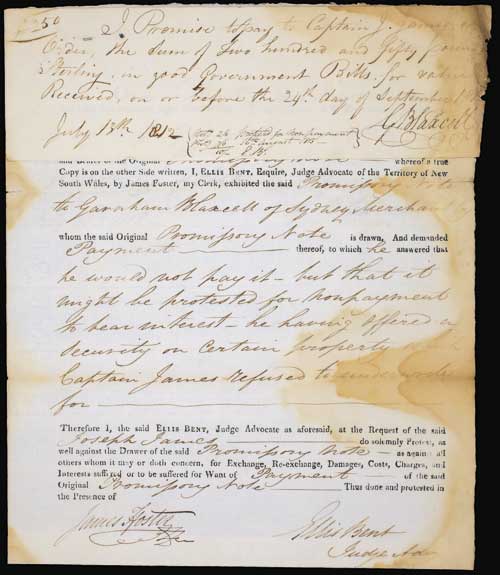 250
I Promise to pay to Captain J. James or
Order, the Sum of Two hundred and fifty pounds
Sterling, in good Government Bills, for value
Received, on or before the 24th day of September
July 13th 1812
G Blaxcell
of the Original Promissory Note whereof a true
Copy is on the other Side written, I, ELLIS BENT, Esquire, Judge Advocate of the Territory of New
South Wales, by James Foster, my Clerk, exhibited the said Promissory Note
to Garnham Blaxcell of Sydney Merchant
whom the said Original Promissory Note is drawn, And demanded
Payment thereof, to which he answered that
he would not pay it - but that it
might be protested for nonpayment
to bear interest - he having offered
security on certain property
Captain James refused to
for
Therefore I, the said ELLIS BENT, Judge Advocate as aforesaid, at the Request of the said
Joseph James do solemnly Protest, as
well against the Drawer of the said Promissory Note - as against all
others whom it may or doth concern, for Exchange, Re-exchange, Damages, Costs, Charges, and
Interests suffered or to be suffered for Want of Payment of the said
Original Promissory Note Thus done and protested in
the Presence of
James Foster
Ellis Bent
Judge Adv